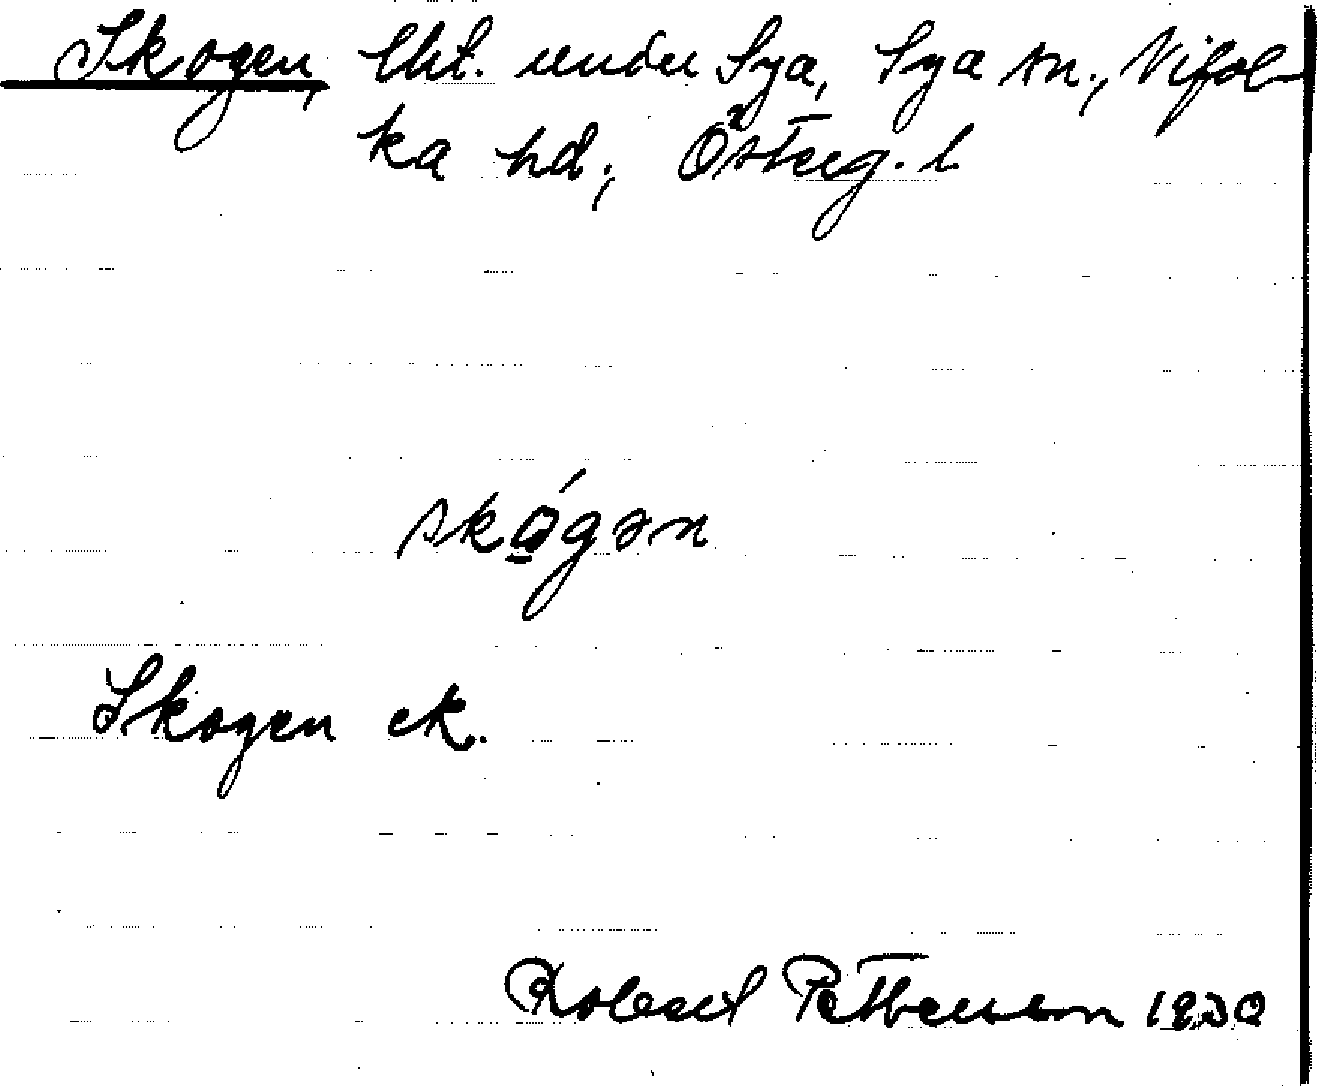 Skogen, lht. under Sya, Sya sn., Vifol-
ka hd., Österg. l
skǫ́gən
Skogen ek.
Robert Pettersson 1930